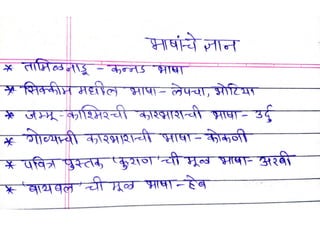 भाषांचे ज्ञान
* तामिळनाडू - कन्नड भाषा
* सिक्कीम मधील भाषा - लेपचा, भोटिया
* जम्मू - काश्मिरची कारभाराची भाषा - उर्दु
* गोव्याची कारभाराची भाषा - कोकणी
* पवित्र पुस्तक 'कुराण' ची मूळ भाषा - अरबी
* 'बायबल' ची मूळ भाषा - हेब्रू